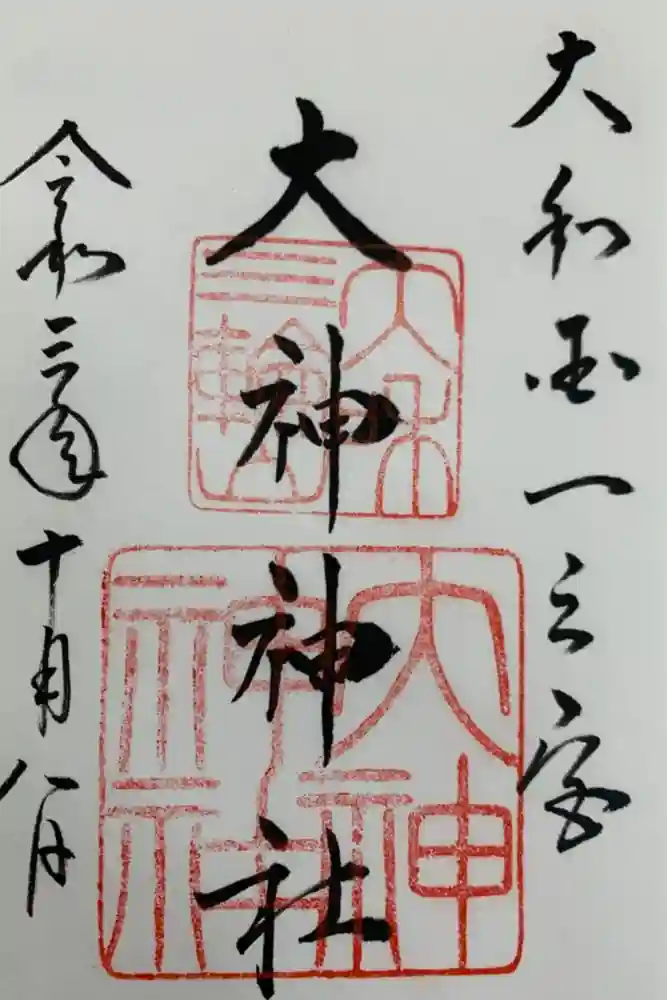 大和国一之宮
大神神社
令和三年十月八日
大神
神社